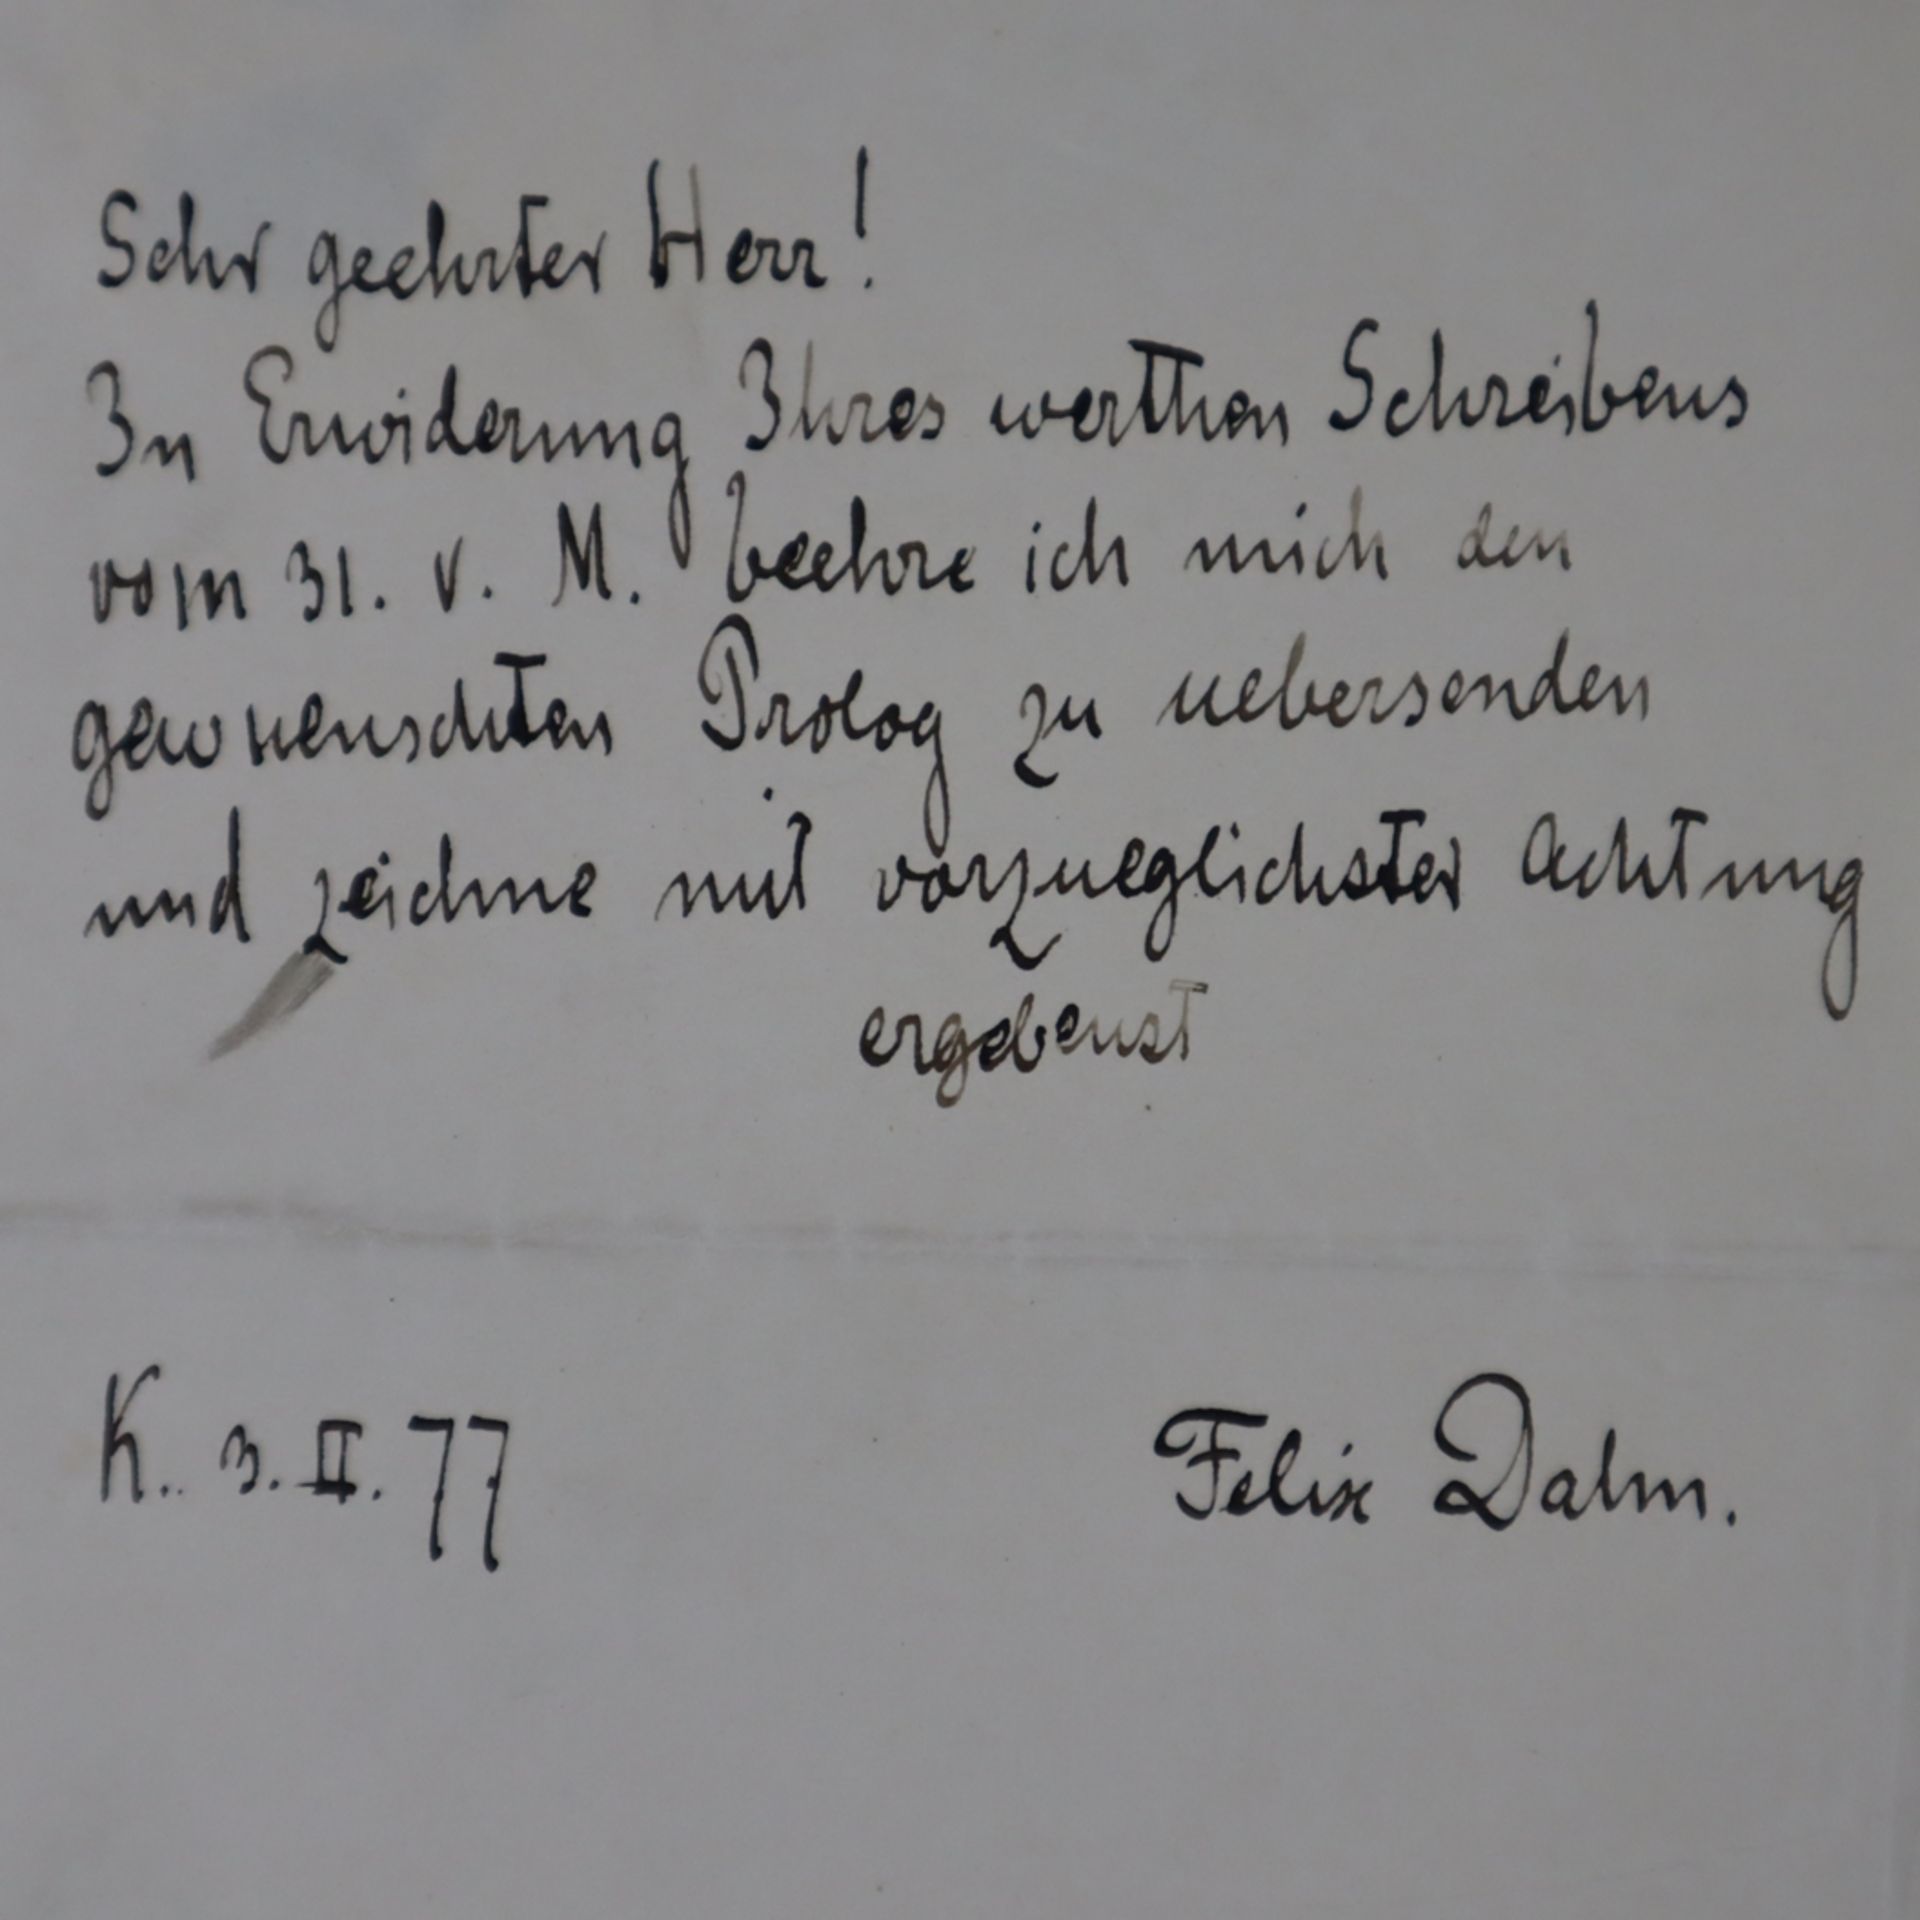 Sehr geehrter Herr!
In Erwiderung Ihres werthen Schreibens
vom 31. v. M. beehre ich mich den
gewuenschten Prolog zu uebersenden
und zeichne mit vorzueglichster Achtung
ergebenst
K.. 3. II. 77
Felix Dahn.